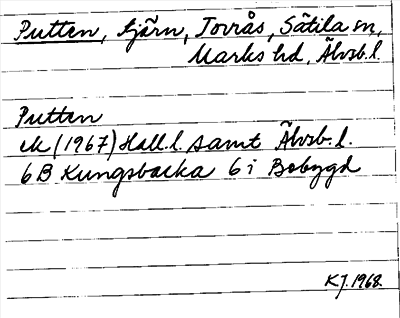 Putten, tjärn, Torrås, Sätila sn,
Marks hd, Älvsb.l.
Putten
ek (1967) Hall.l. samt Älvsb.l.
6B Kungsbacka 6i Bebygd
KJ. 1968.